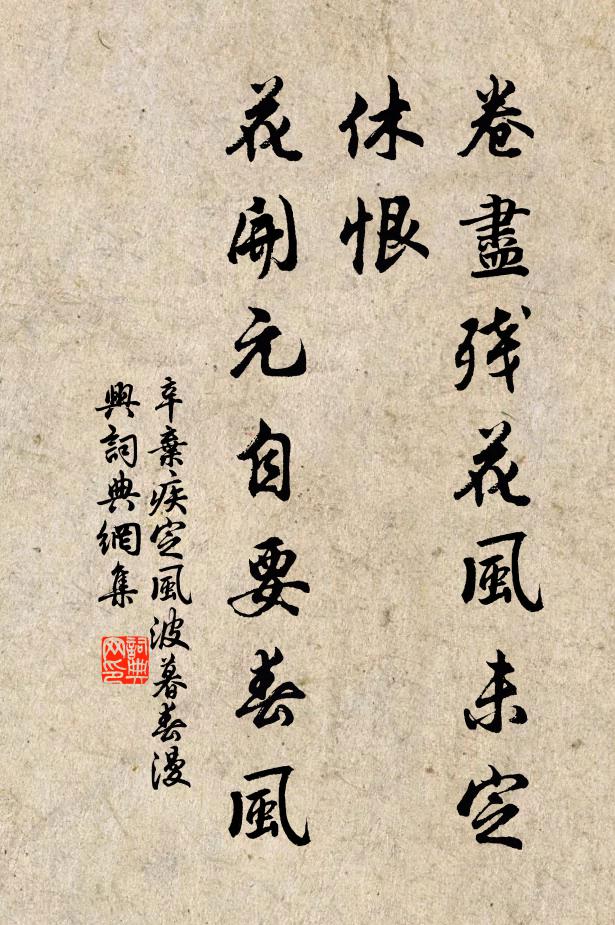 卷盡残花風未定
休恨
花開元自要春風
辛棄疾定風波暮春漫
興詞典網集
詞典
网印